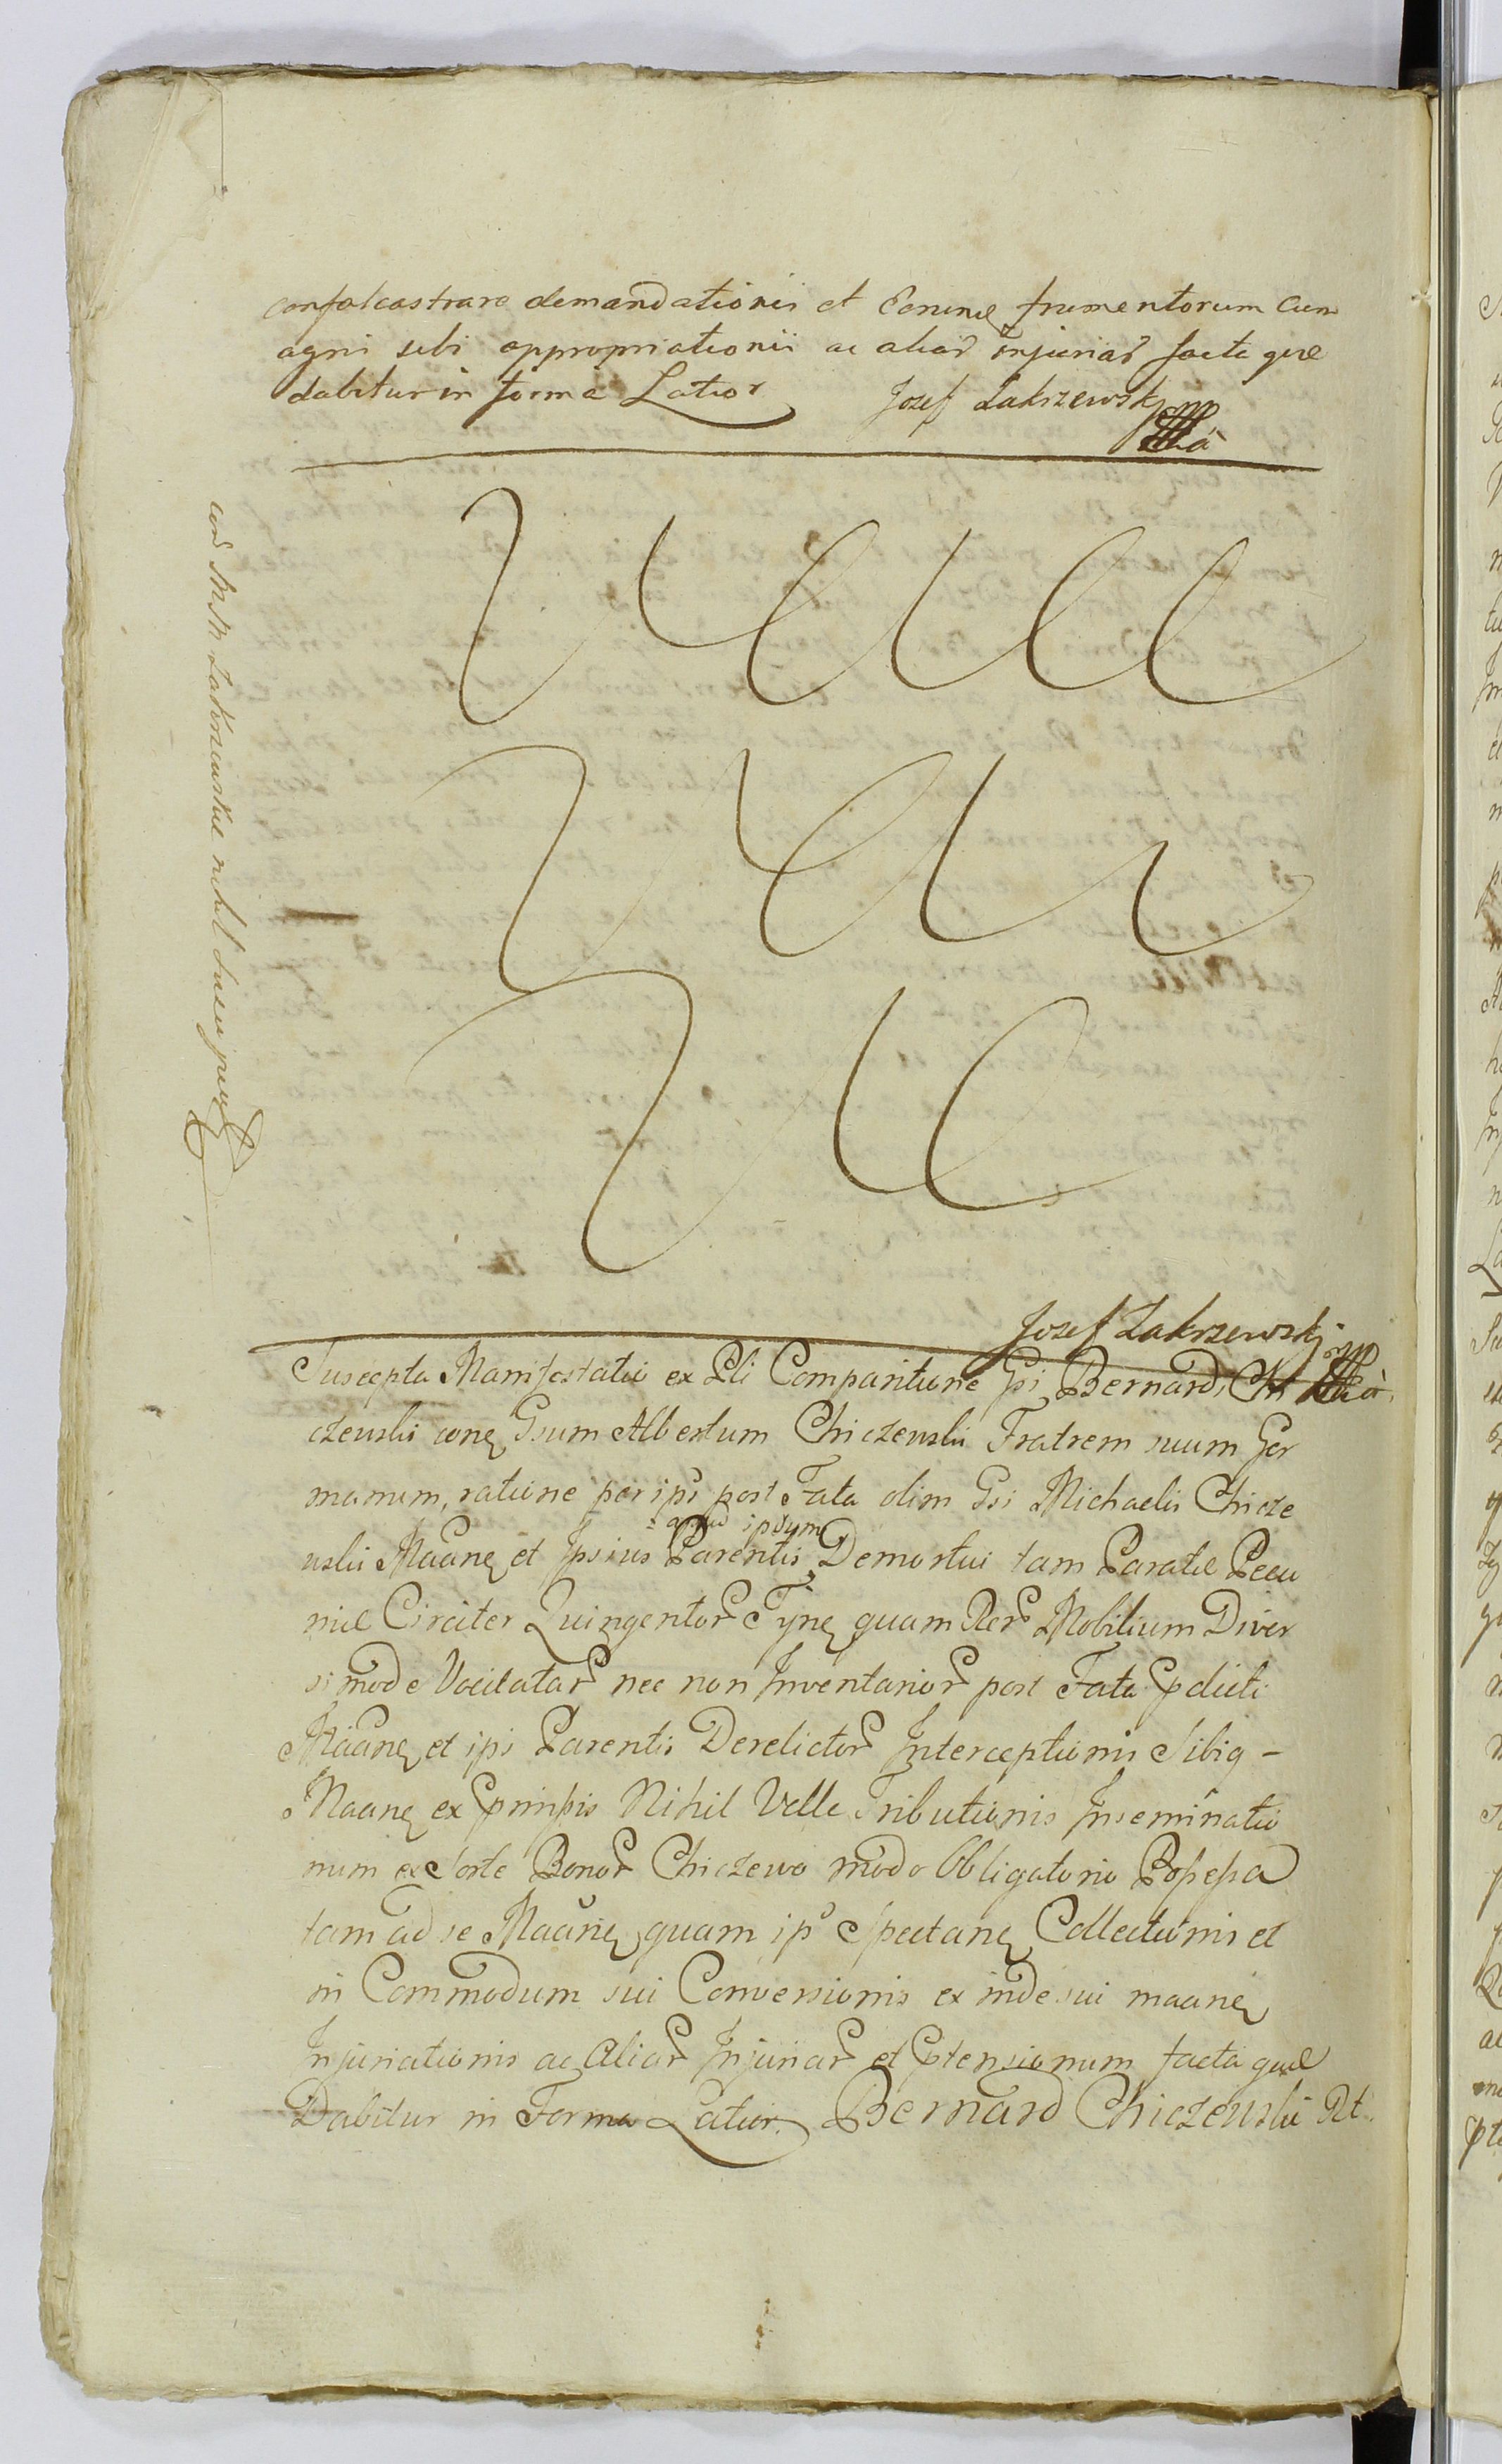 confalcastrare demandationis et Eorund frumentorum cum
agri sibi appropriationis ac aliar Injuriar facta que
dabitur in forma Latior Jozef Zakrzewski mp
Jozef Zakrzewski mp
Suscepta Manifestatio ex Pli Comparitione Gsi Bernardi Chi
czewski cone Gsum Albertum Chiczewski Fratrem suum Ger
manum, ratione per ips post Fata olim Gsi Michaelis Chicze
wski Maane et Ipsius Parentis apud ipsum Demortui tam Paratae Pecu
niae Circiter Quingentor Tyne quam Rer Mobilium Diver
simode Vocitatar nec non Inventarior post Fata pdicti
Maane et ipi Parentis Derelictor Interceptionis Sibiq -
Maane ex pmissis Nihil Velle Tributionis Inseminatio
num ex Sorte Bonor Chiczewo modo Obligatorio Possessa
tam ad se Maane quam ip Spectane Collectionis et
in Commodum sui Conversionis ex inde sui maane
Injuriationis ac Aliar Injuriar et ptensionum facta quae
Dabitur in Forma Latior. Bernard Chiczewski Rt.